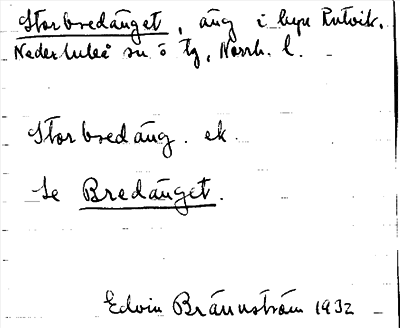 Storbredänget, äng i byn Rutvik,
Nederluleå sn o tg, Norrb. l.
Storbredäng. ek.
Se Bredänget.
Edvin Brännström 1932